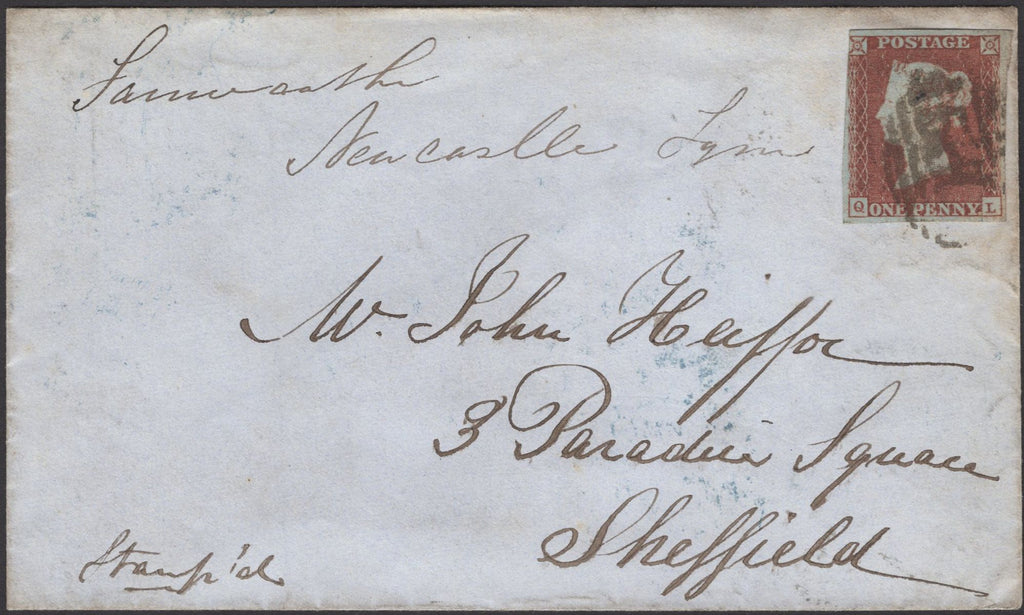 Tamworth
Newcastle Lyme
POSTAGE
Q ONE PENNY L
Mr. John Heiffor
3 Paradise Square
Sheffield
Stamp'd